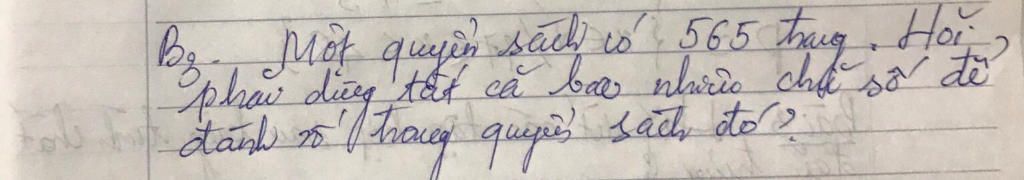 B3. Một quyển sách có 565 trang. Hỏi
phải dùng tất cả bao nhiêu chữ số để
đánh số trang quyển sách đó?